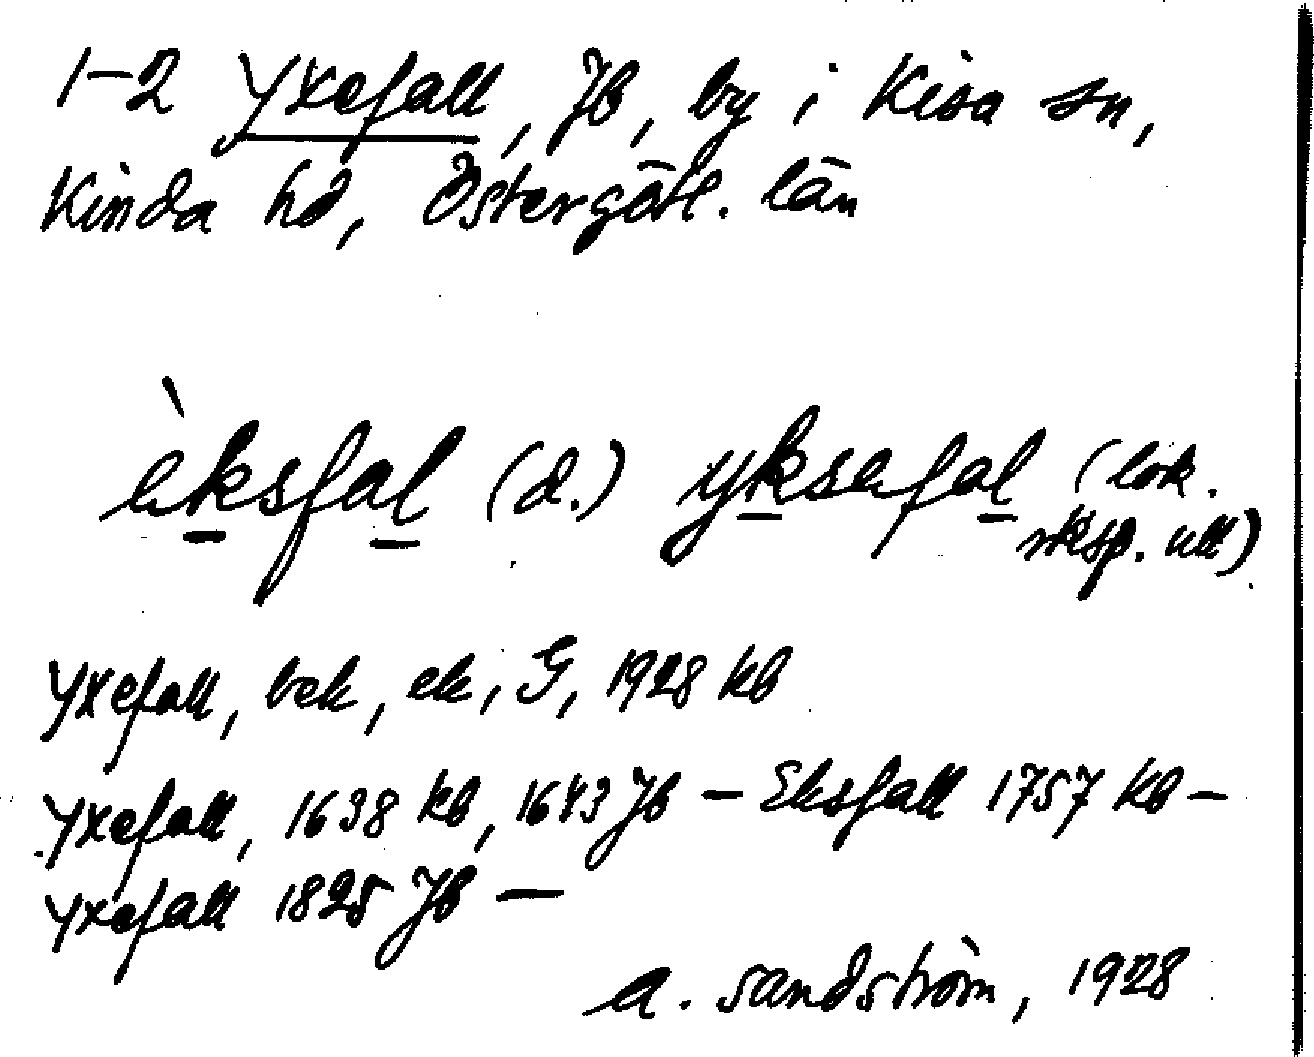 1-2 Yxefall, Jb, by i Kisa sn,
Kinda hd, Östergötl. län
èksfal (d.) yksefal (lok.
rksp. utt)
Yxefall, bek, ek, G, 1928 kb
Yxefall, 1638 kb, 1643 Jb — Eksfall 1757 kb —
Yxefall 1825 Jb —
A. Sandström, 1928